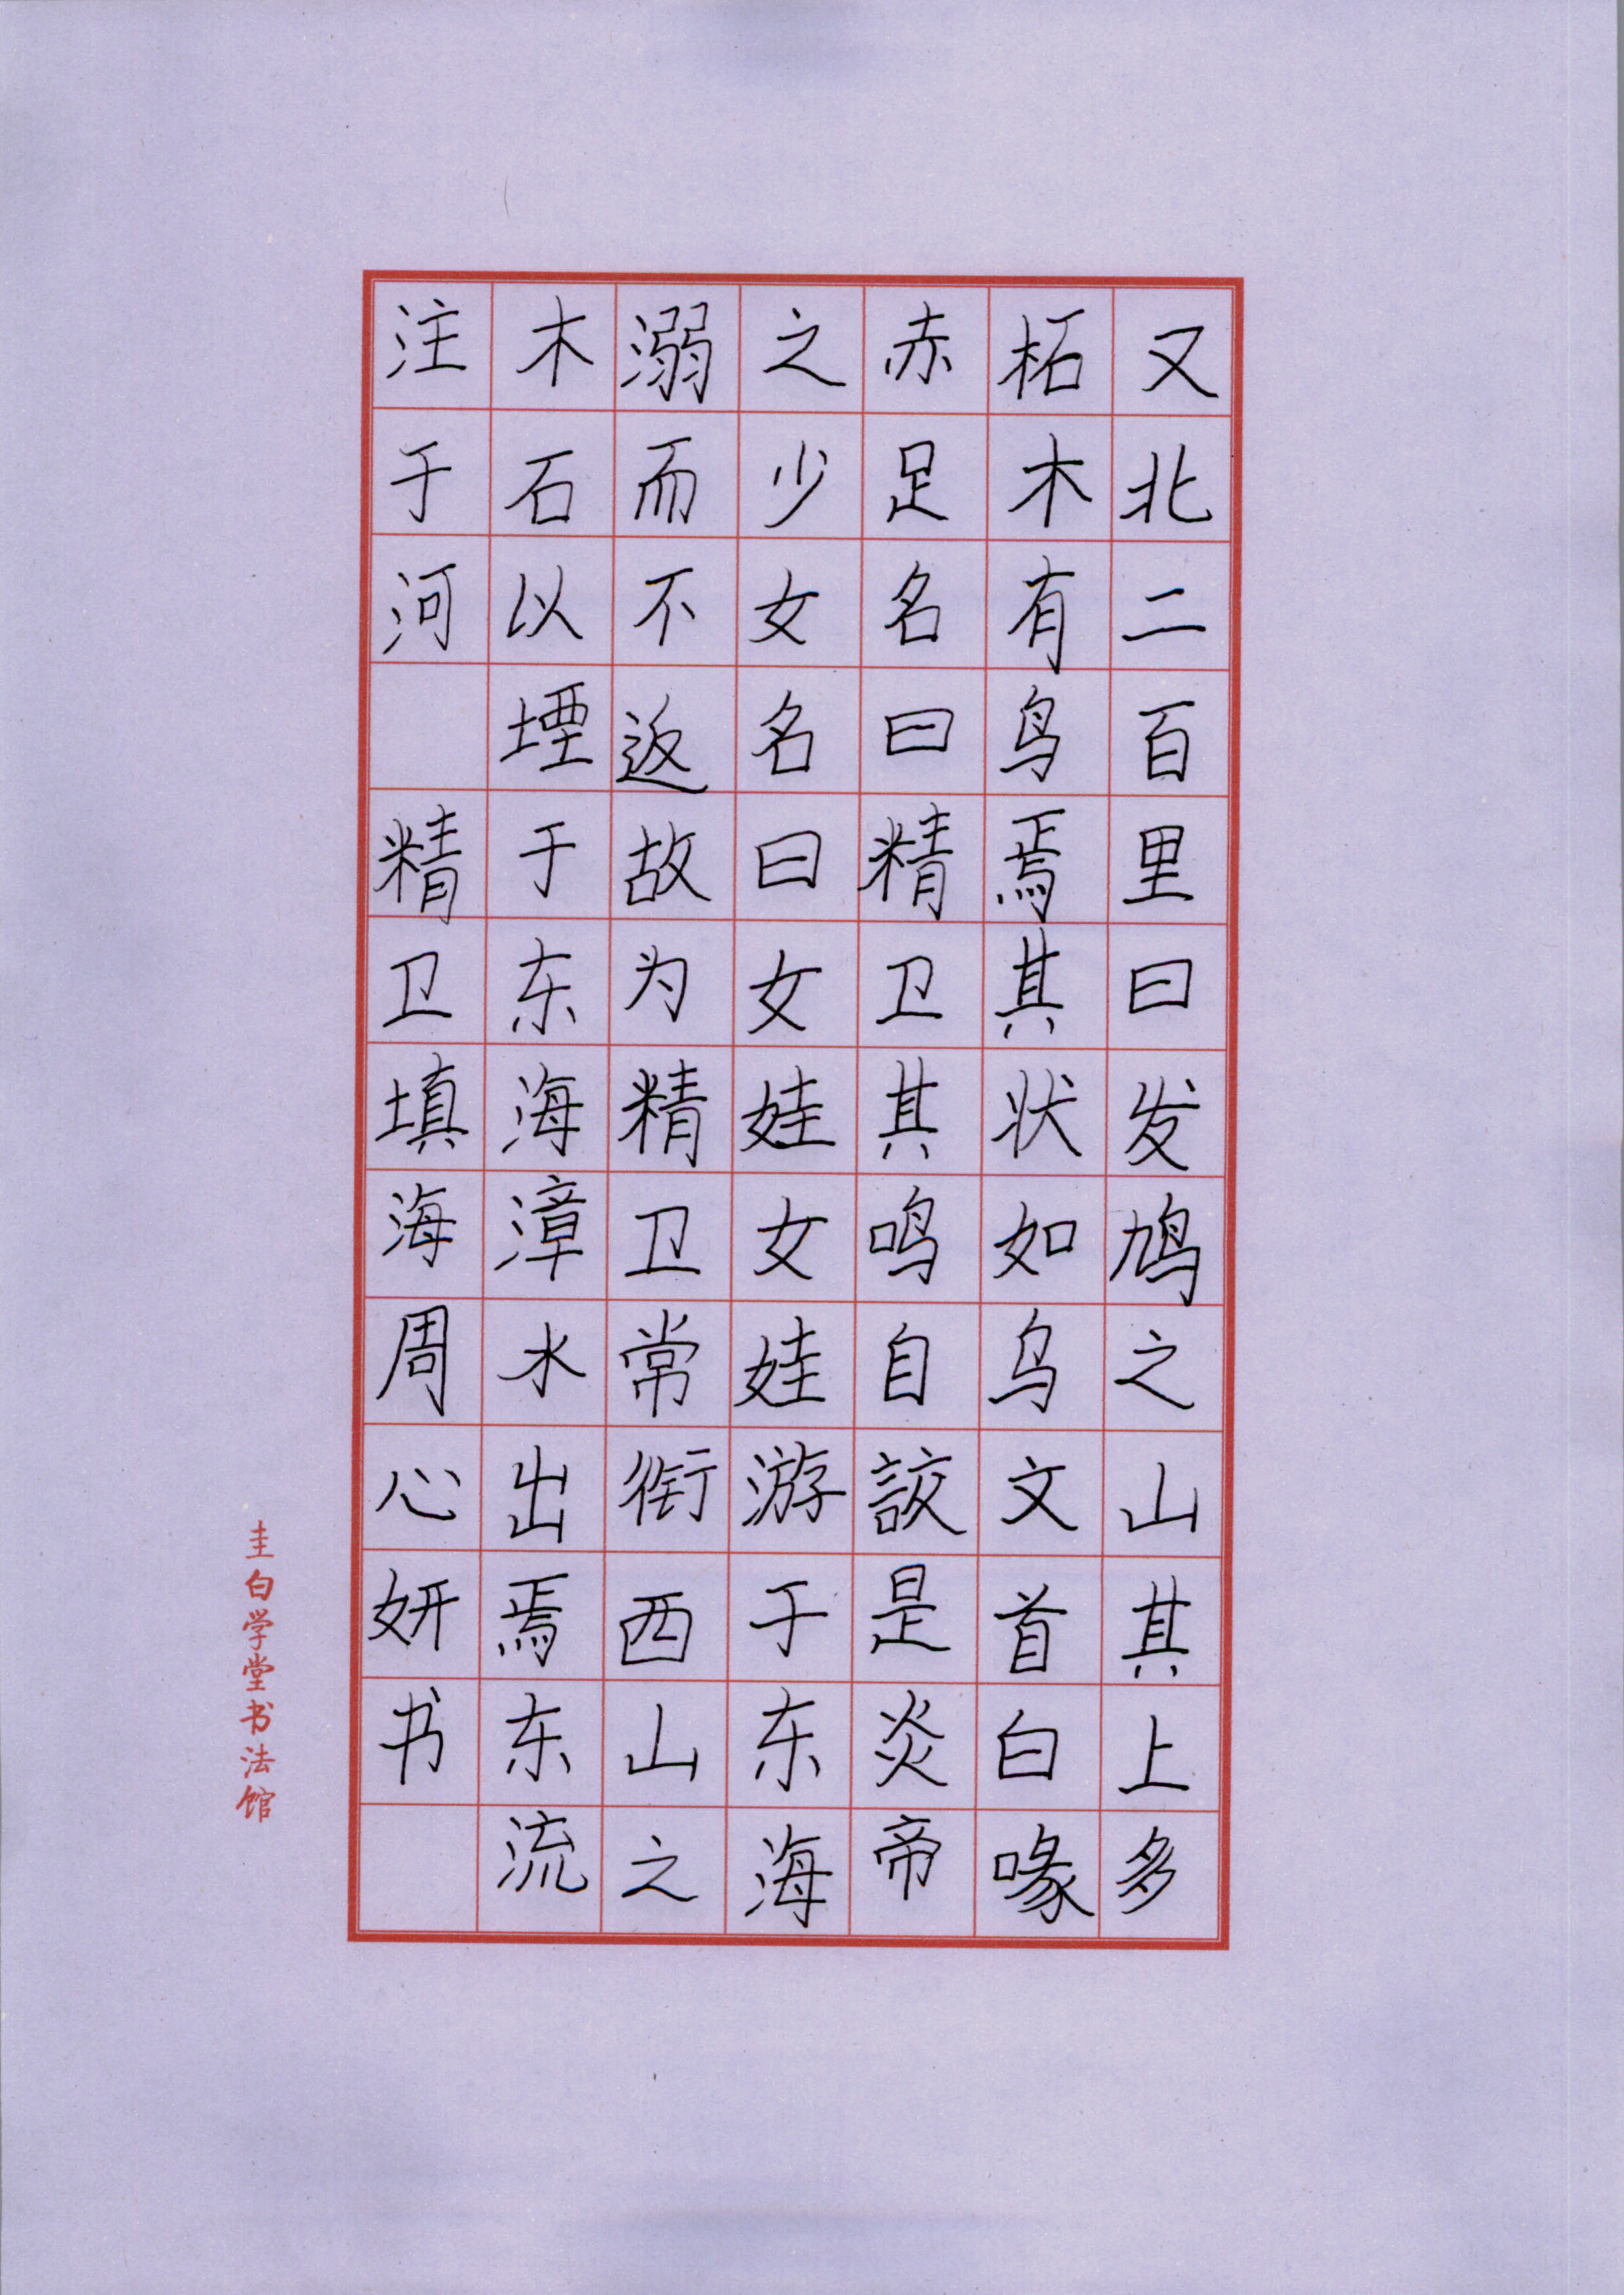 又北二百里曰发鸠之山其上多
柘木有鸟焉其状如乌文首白喙
赤足名曰精卫其鸣自詨是炎帝
之少女名曰女娃女娃游于东海
溺而不返故为精卫常衔西山之
木石以堙于东海漳水出焉东流
注于河 精卫填海周心妍书
圭白学堂书法馆